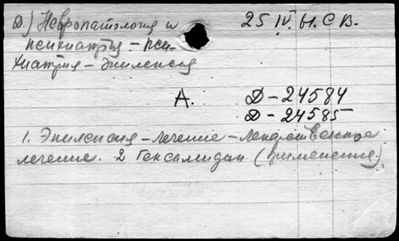 Д.) Невропатология и
психиатрия - пси-
хиатрия - эпилепсия
25 IV. Н.С В.
А. Д-24584
Д-24585
1. Эпилепсия - лечение - лекарственное
лечение. 2 Гексамидин (применение)